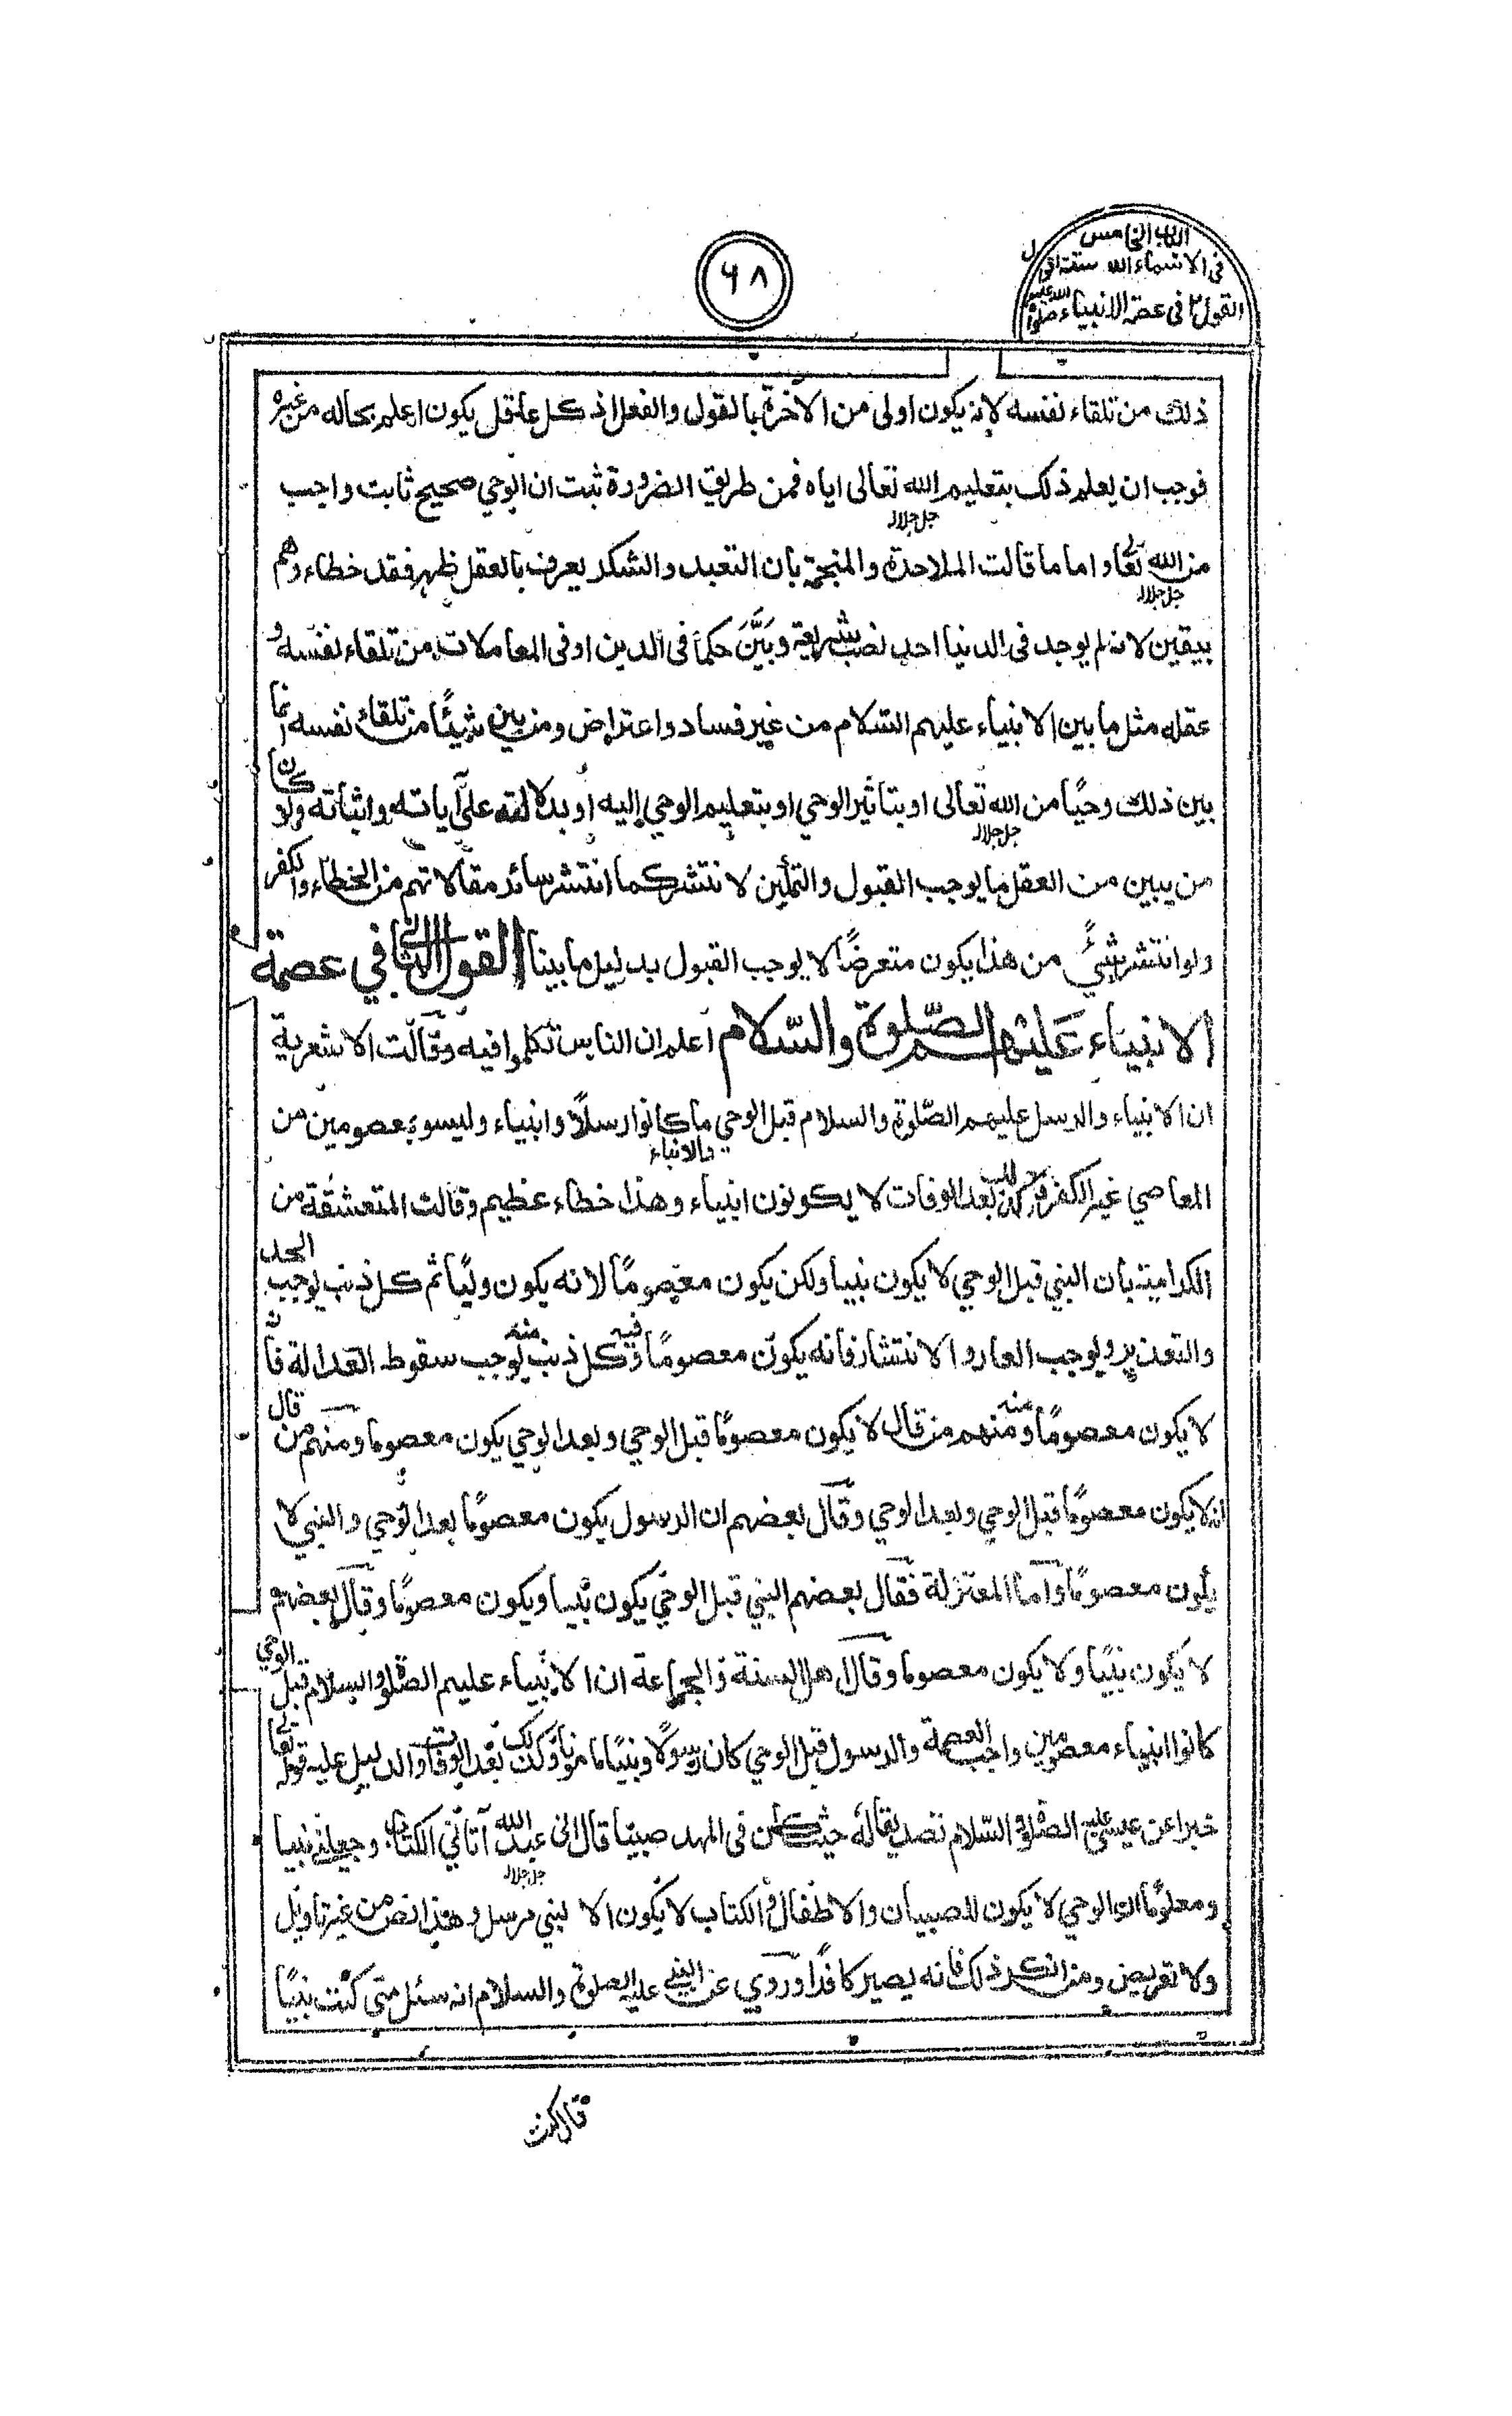 الباب الخامس
في الاسماء الله ستة اقوال
القول ٢ في عصمة الانبياء صلوة الله عليهم
٦٨
ذلك من تلقاء نفسه لانه يكون اولى من الآخرة بالقول والفعل اذ كل عاقل يكون اعلم بحاله من غيره
فوجب ان يعلم ذلك بتعليم الله تعالى اياه فمن طريق الضرورة ثبت ان الوحي صحيح ثابت واجب
جل جلاله
من الله تعا واما ما قالت الملاحدة والمنجمة بان التعبد والشكر يعرف بالعقل ظهر فقد خطاءوهم
جل جلاله
بيقين لانه لم يوجد في الدنيا احد نصب شريعة وبَيَّنَ حكما في الدين او في المعاملات من تلقاء نفسه و
عقله مثل ما بين الانبياء عليهم السلام من غير فساد واعتراض ومن بين شيئًا من تلقاء نفسه انما
بين ذلك وحيًا من الله تعالى او بتاثير الوحي او بتعليم الوحي إليه او بدلالته على آياته واثباته ولو كان
جل جلاله
من يبين من العقل ما يوجب القبول والتمكين لانتشر كما انتشر سائر مقالاتهم من الخطاء والكفر
ولو انتشر شيئ من هذا يكون متعرضًا لا يوجب القبول بدليل ما بينا القول الثاني في عصمة
الانبياء عَليْهم الصّلوة والسّلام اعلم ان الناس تكلموا فيه وقالت الاشعرية
ان الانبياء والرسل عليهم الصّلوة والسلام قبل الوحي ما كانوا رسلًا وانبياء وليسوا بمعصومين من
والانبياء
المعاصي غير الكفر وكذلك بعد الوفات لا يكونون انبياء وهذا خطاء عظيم وقالت المتعشقة من
الكرامية بان النبي قبل الوحي لا يكون نبيا ولكن يكون معصومًا لانه يكون وليًا ثم كل ذنب يوجب الحد
والتعزير ويوجب العار والانتشار فانه يكون معصومًا فيه وكل ذنب منه لا يوجب سقوط العدالة فانه
لا يكون معصومًا منه ومنهم من قال لا يكون معصومًا قبل الوحي وبعد الوحي يكون معصوما ومنهم من قال
انه لا يكون معصومًا قبل الوحي وبعد الوحي وقال بعضهم ان الرسول يكون معصومًا بعد الوحي والنبي لا
يكون معصومًا واما المعتزلة فقال بعضهم النبي قبل الوحي يكون نبيا ويكون معصومًا وقال بعضهم
لا يكون نبيًا ولا يكون معصوما وقال اهل السنة والجماعة ان الانبياء عليهم الصلوة والسلام قبل الوحي
كانوا انبياء معصومين واجب العصمة والرسول قبل الوحي كان رسولًا ونبيًا مامونا وكذلك بعد الوفات والدليل عليه قوله تعالى
خبرا عن عيسى عليه الصلوة والسّلام تصديقا له حيث كان في المهد صبيّا قال اني عبد الله آتاني الكتاب وجعلني نبيا
جل جلاله
ومعلومًا ان الوحي لا يكون للصبيان والاطفال والكتاب لا يكون الا لنبي مرسل وهذا نص من غير تاويل
ولا تعريض ومن انكر ذلك فانه يصير كافرًا وروي عن النبي عليه الصلوة والسلام انه سئل متى كنت نبيًا
قال كنت